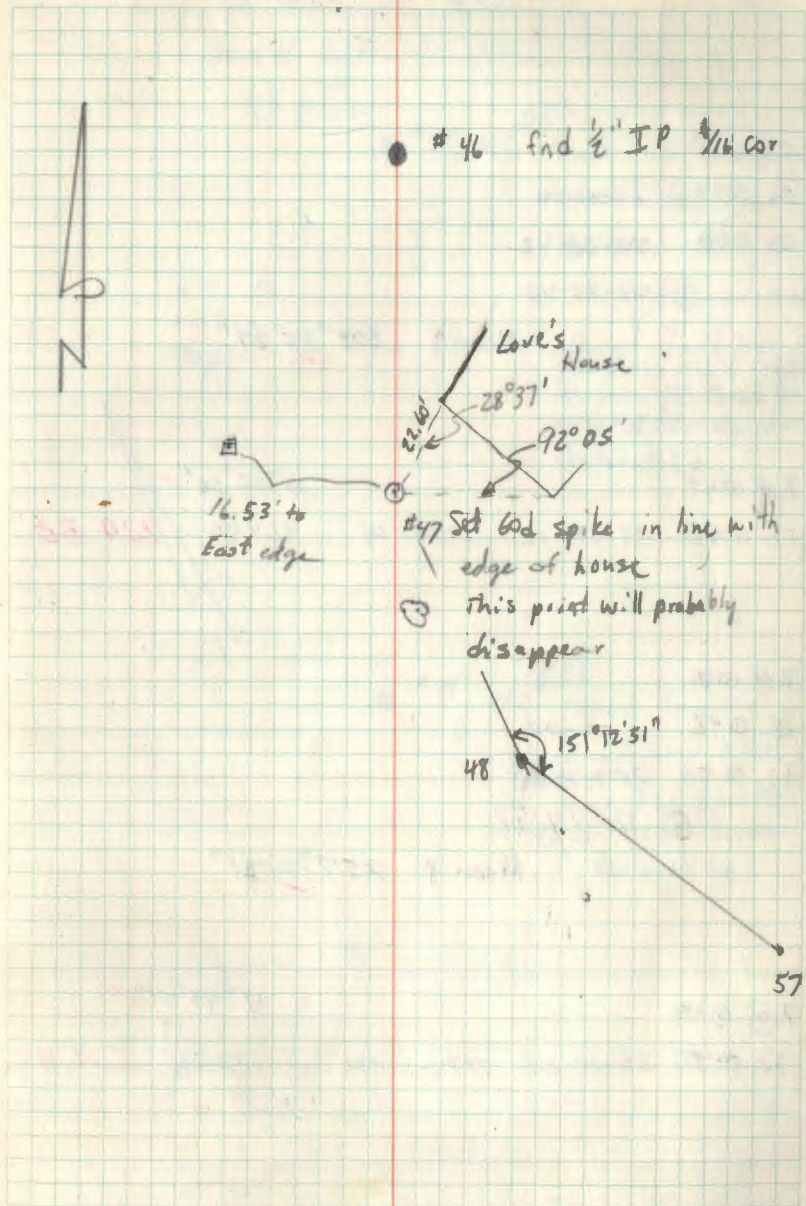 # 46 fnd 1/2" IP 1/16 cor
Love's
House
28°37'
22.60'
92°05'
16.53' to
East edge
#47 Set 60d spike in line with
edge of house
This point will probably
disappear
151°12'51"
48
57